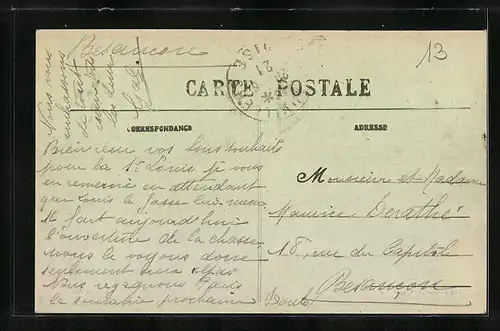 Besançon
13
CARTE POSTALE
CORRESPONDANCE
ADRESSE
Vous vous
embrassons
de tout
cœur
les deux
Bien reçu vos bons souhaits
pour la St Louis, je vous
en remercie en attendant
que Louis le fasse lui-même
Il fait aujourd'hui
l'ouverture de la chasse
nous le voyons donc
seulement aux repas
Nous regagnons Paris
la semaine prochaine
Monsieur et Madame
Maurice Derathé
18, rue du Capitole
Besançon
Doubs